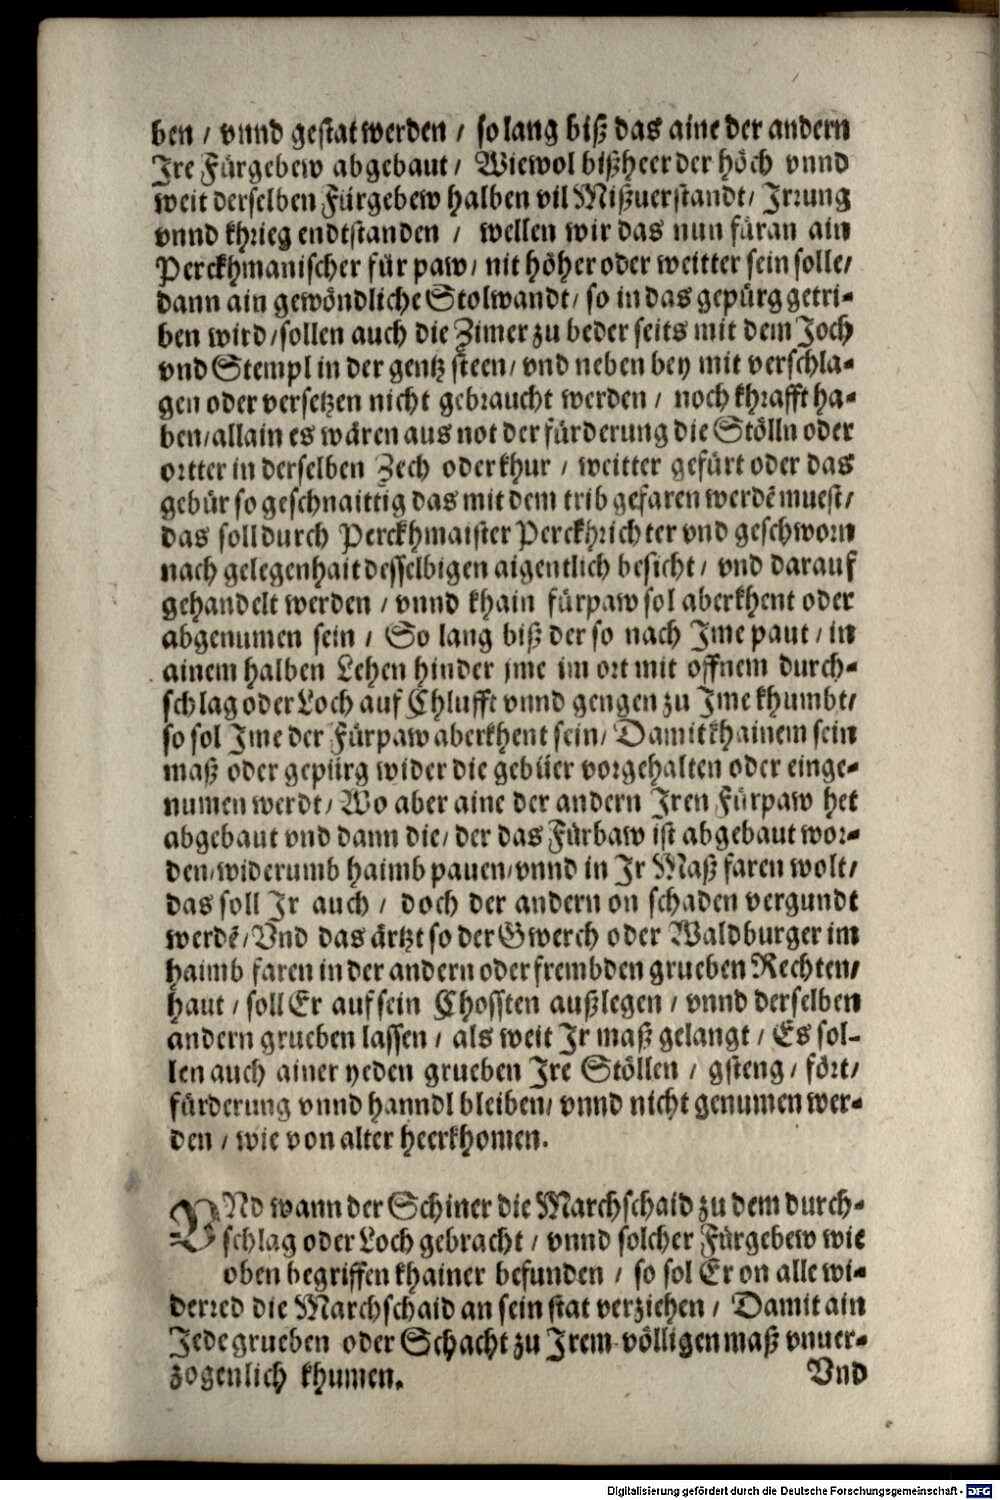 ben / vnnd gestat werden / so lang biß das aine der andern
Ire Fürgebew abgebaut / Wiewol bißheer der höch vnnd
weit derselben Fürgebew halben vil Mißuerstandt / Irrung
vnnd khrieg endtstanden / wellen wir das nun füran ain
Perckhmanischer für paw / nit höher oder weitter sein solle /
dann ain gewöndliche Stolwandt / so in das gepürg getri-
ben wird / sollen auch die Zimer zu beder seits mit dem Joch
vnd Stempl in der gentz steen / vnd neben bey mit verschla-
gen oder versetzen nicht gebraucht werden / noch khrafft ha-
ben / allain es wären aus not der fürderung die Stölln oder
ortter in derselben Zech oder khur / weitter gefürt oder das
gebür so geschnaittig das mit dem trib gefaren werdē muest /
das soll durch Perckhmaister Perckhrichter vnd geschworn
nach gelegenhait desselbigen aigentlich besicht / vnd darauf
gehandelt werden / vnnd khain fürpaw sol aberkhent oder
abgenumen sein / So lang biß der so nach Ime paut / in
ainem halben Lehen hinder jme im ort mit offnem durch-
schlag oder Loch auf Chlufft vnnd gengen zu Ime khumbt /
so sol Ime der Fürpaw aberkhent sein / Damit khainem sein
maß oder gepürg wider die gebüer vorgehalten oder einge-
numen werdt / Wo aber aine der andern Iren Fürpaw het
abgebaut vnd dann die / der das Fürbaw ist abgebaut wor-
den / widerumb haimb pauen / vnnd in Ir Maß faren wolt /
das soll Ir auch / doch der andern on schaden vergundt
werdē / Vnd das ärtzt so der Gwerch oder Waldburger im
haimb faren in der andern oder frembden grueben Rechten /
haut / soll Er auf sein Chossten außlegen / vnnd derselben
andern grueben lassen / als weit Ir maß gelangt / Es sol-
len auch ainer yeden grueben Ire Stöllen / gsteng / fört /
fürderung vnnd hanndl bleiben / vnnd nicht genumen wer-
den / wie von alter heerkhomen.
VNd wann der Schiner die Marchschaid zu dem durch-
schlag oder Loch gebracht / vnnd solcher Fürgebew wie
oben begriffen khainer befunden / so sol Er on alle wi-
derred die Marchschaid an sein stat verziehen / Damit ain
Jede grueben oder Schacht zu Irem völligen maß vnuer-
zogenlich khumen.
Vnd
Digitalisierung gefördert durch die Deutsche Forschungsgemeinschaft - DFG